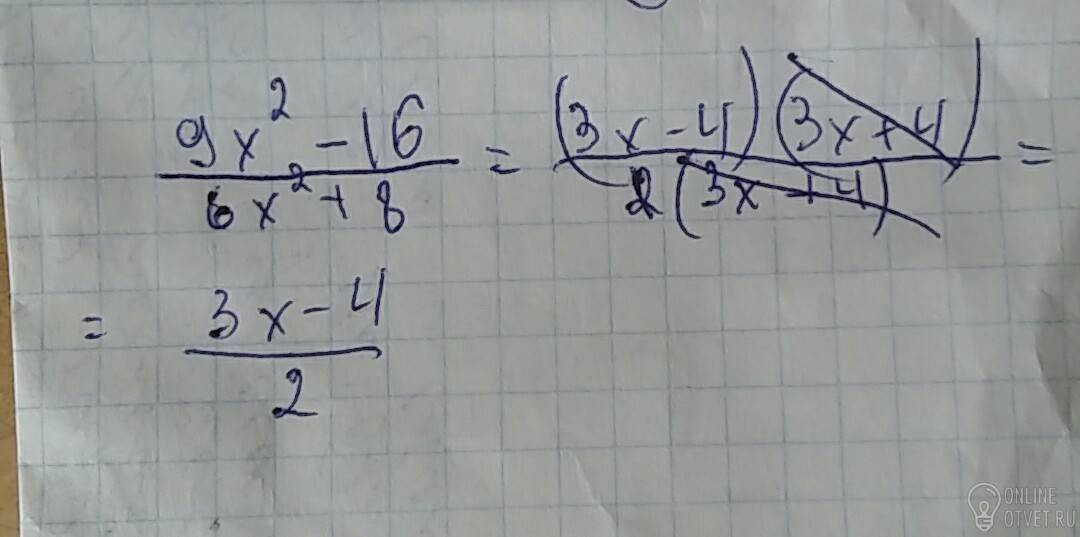 (9x² - 16)/(6x² + 8) = ((3x - 4)(3x + 4))/(2(3x + 4)) =
= (3x - 4)/2
ONLINE
OTVET.RU